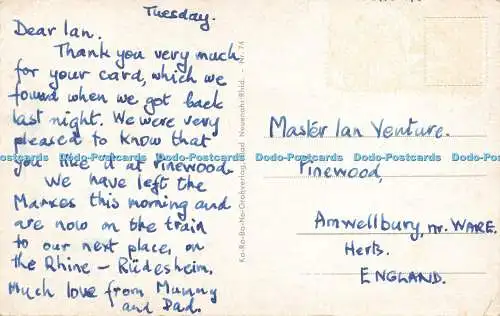 Tuesday.
Dear Ian.
Thank you very much
for your card, which we
found when we got back
last night. We were very
pleased to know that
you like it at Pinewood.
We have left the
Markes this morning and
are now on the train
to our next place, on
the Rhine – Rüdesheim.
Much love from Mummy
and Dad.
Ka-Ro-Bo-Na-Großverlag, Bad Neuenahr/Rhld. - Nr. 74
Master Ian Venture.
Pinewood,
Amwellbury, nr. WARE.
Herts.
ENGLAND.
Dodo-Postcards Dodo-Postcards Dodo-Postcards Dodo-Postcards Dodo-Postcards